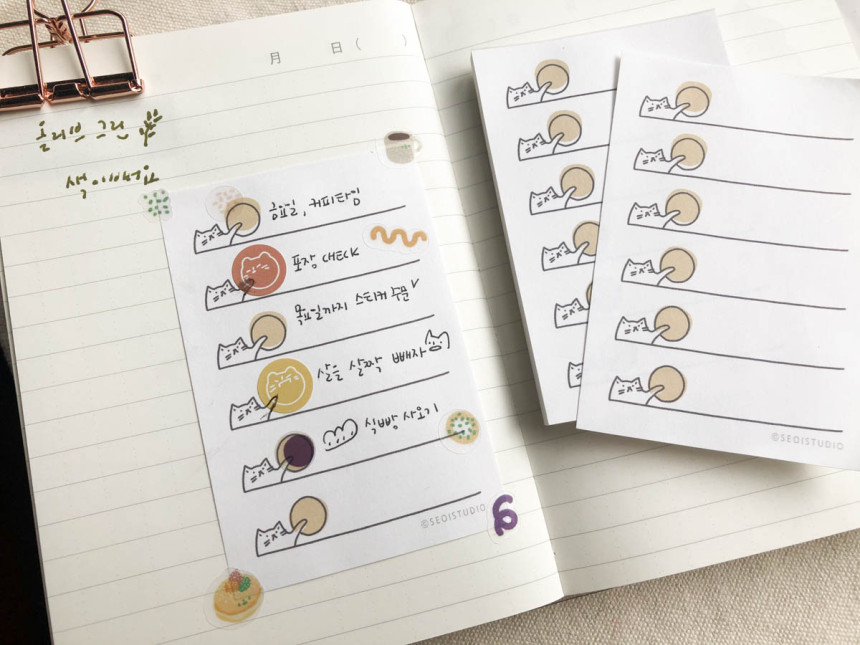 月 日 ( )
올리브 그린
색이에요
금요일, 커피타임
포장 CHECK
목요일까지 스티커 주문
살을 살짝 빼자
식빵 사오기
©SEOISTUDIO
©SEOISTUDIO